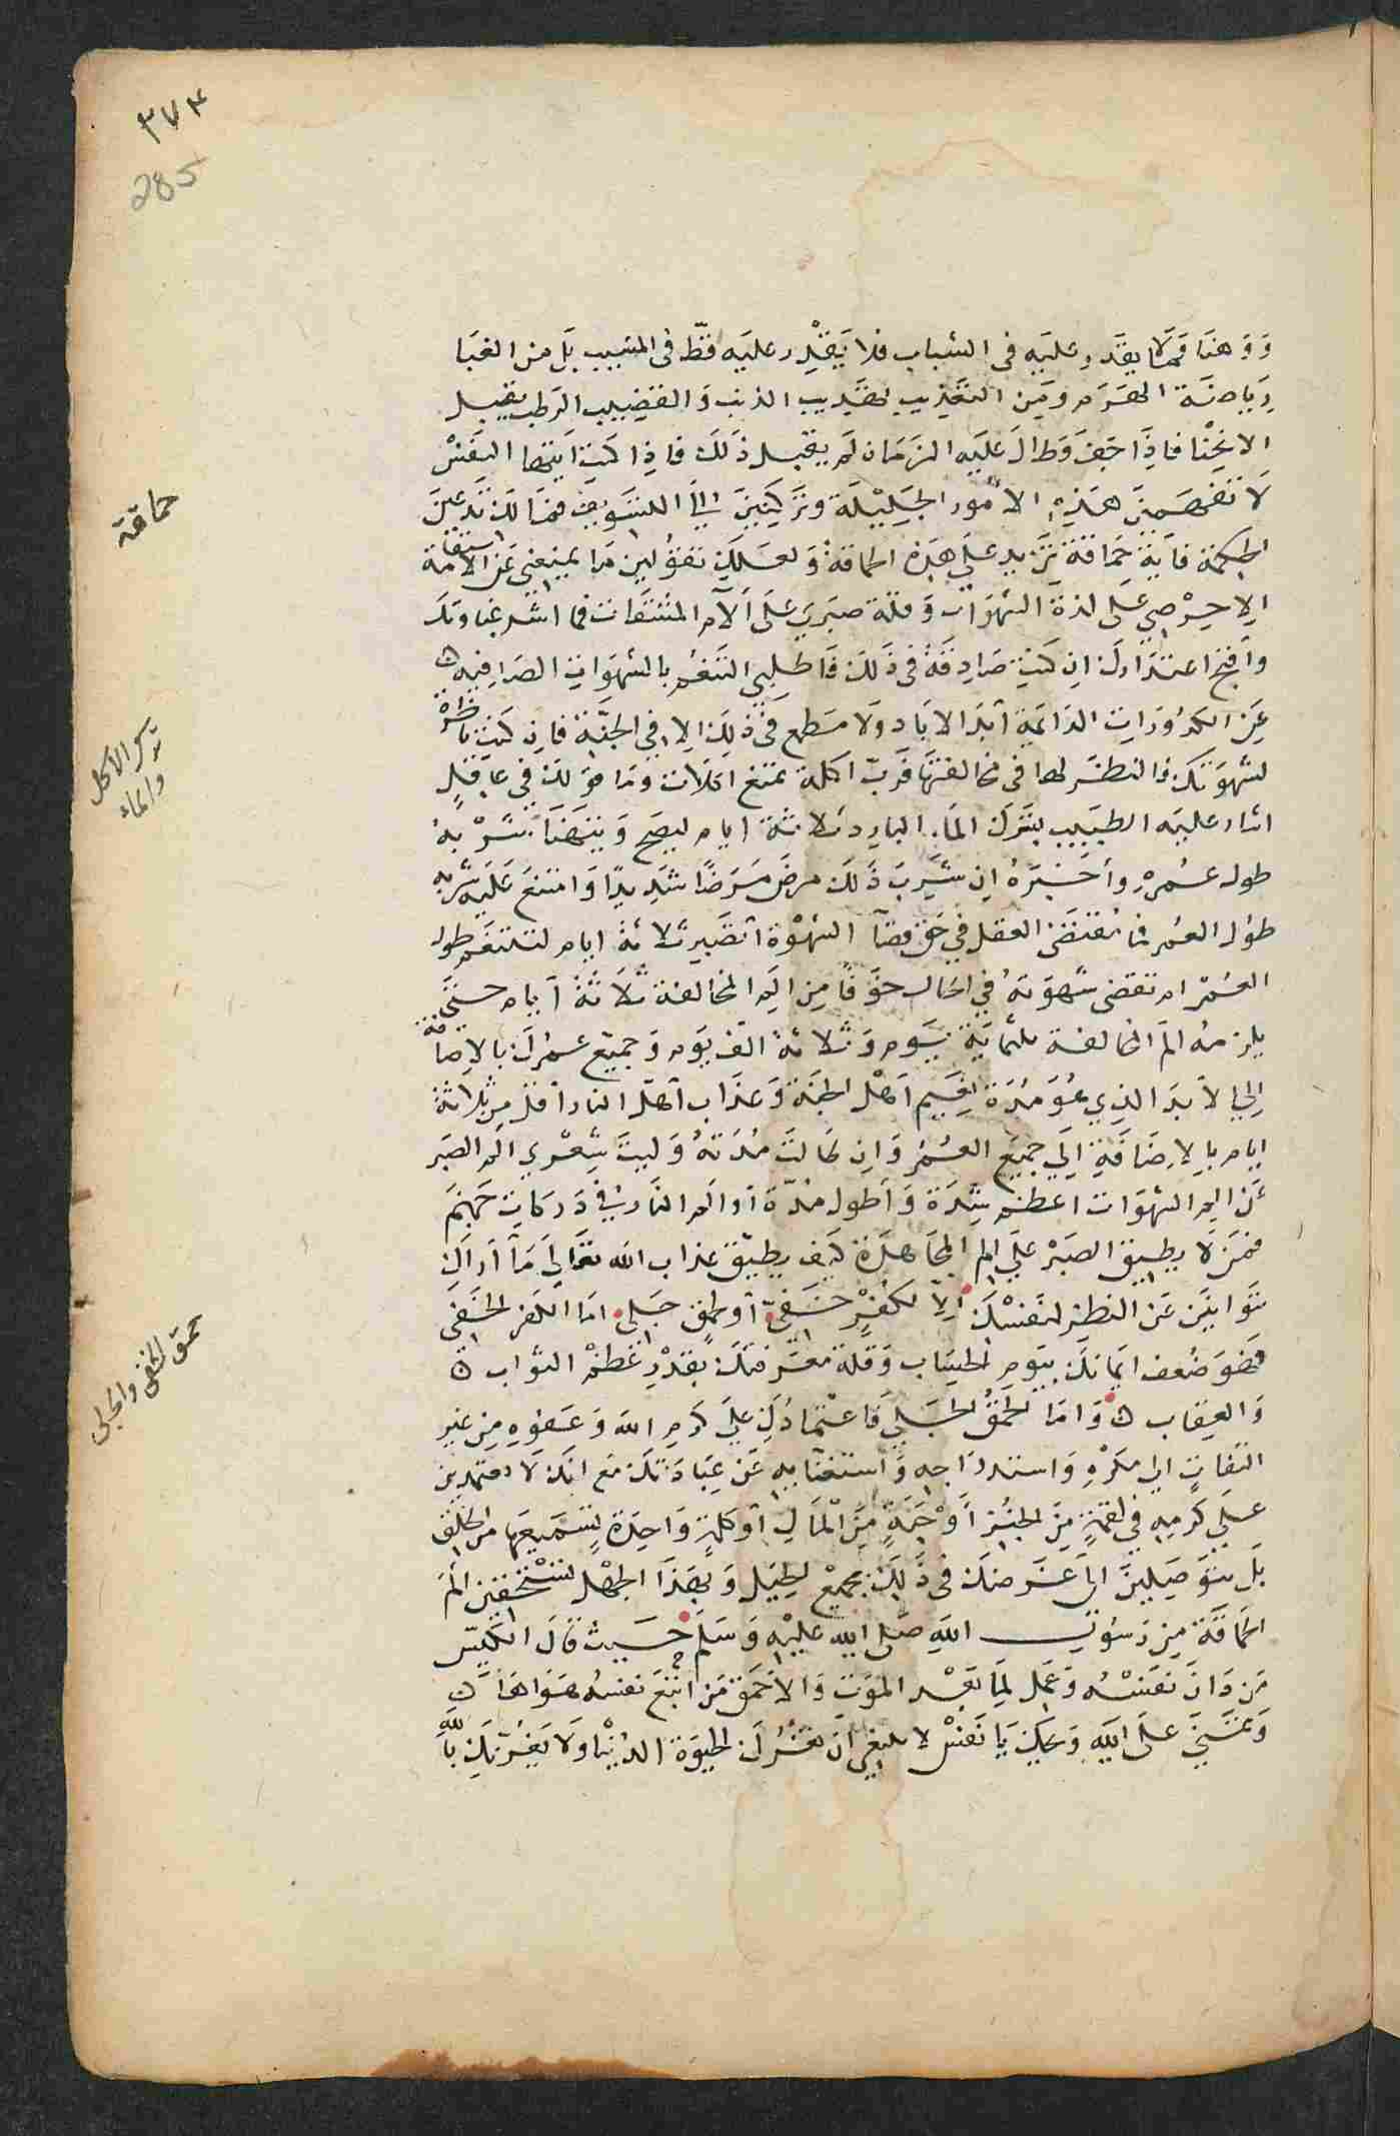 ٣٧٤
285
ووهنا فما لا يقدر عليه في الشباب فلا يقدر عليه قط في المشيب بل من العنا
رياضة الهرم ومن التعذيب تهذيب الذئب والقضيب الرطب يقبل
الانحنا فاذا جف وطال عليه الزمان لم يقبل ذلك فاذا كنت ايتها النفس
لا تفهمين هذه الامور الجليلة وتركنين الي التسويف فما لك تدعين
الحكمة فاية حماقة تزيد علي هذه الحماقة ولعلك تقولين ما يمنعني عن الاستقامة
الا حرصي على لذة الشهوات وقلة صبري على الآم المشقات فما اشد غباوتك
واقبح اعتذارك ان كنت صادقة في ذلك فاطلبي التنعم بالشهوات الصافيه
عن الكدورات الدائمة ابد الاباد ولا مطمع في ذلك الا في الجنة فان كنت ناظرة
لشهوتك فالنظر لها في مخالفتها فرب اكلة تمنع اكلات وما قولك في عاقل
اشار عليه الطبيب بترك الماء البارد ثلاثة ايام ليصح ويتهنا بشربه
طول عمره واخبره ان شرب ذلك مرض مرضا شديدا وامتنع عليه شربه
طول العمر فما مقتضى العقل في حق قضآ الشهوة ايصبر ثلاثة ايام لتنعم طول
العمر ام تقضي شهوته في الحال خوفا من الم المخالفة ثلاثة ايام حتى
يلزمه الم المخالفة ثلثماية يوم وثلاثة الف يوم وجميع عمرك بالاضافة
الي الابد الذي هو مدة نعيم اهل الجنة وعذاب اهل النار اقل من ثلاثة
ايام بالاضافة الي جميع العمر وان طالت مدته وليت شعري الم الصبر
عن الم الشهوات اعظم شدة واطول مدة او الم النار في دركات جهنم
فمن لا يطيق الصبر علي الم المجاهدة كيف يطيق عذاب الله تعالى ما اراك
تتوانين عن النظر لنفسك الا لكفر خفي او لحمق جلي اما الكفر الخفي
فهو ضعف ايمانك بيوم الحساب وقلة معرفتك بقدر عظم الثواب
والعقاب واما الحمق الجلي فاعتمادك علي كرم الله وعفوه من غير
التفات الى مكره واستدراجه واستغنآيه عن عبادتك مع انك لا تعتمدين
علي كرمه في لقمة من الخبز او حبة من المال او كلمة واحدة تسمعيها من الخلق
بل تتوصلين الى غرضك في ذلك بجميع الحيل وبهذا الجهل تستحقين اسم
الحماقة من رسول الله صلى الله عليه وسلم حيث قال الكيس
من دان نفسه وعمل لما بعد الموت والاحمق من اتبع نفسه هواها
وتمنى على الله ويحك يا نفس لا ينبغي ان تغرك الحيوة الدنيا ولا يغرنك بالله
حماقة
الاكل
والماء
حمق الخفي والجلى